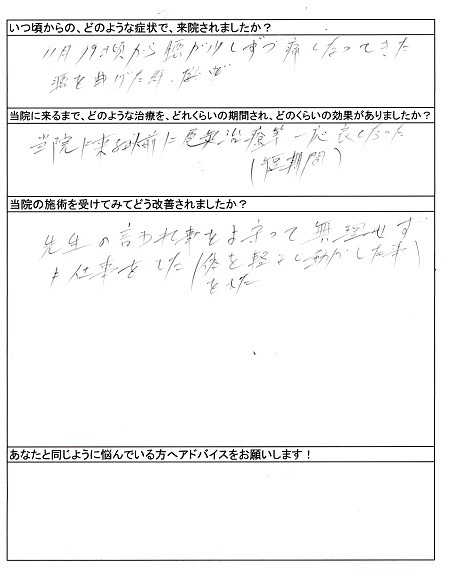 いつ頃からの、どのような症状で、来院されましたか？
11月19頃から腰が少しずつ痛くなってきた
腰を曲げた時、など
当院に来るまで、どのような治療を、どれくらいの期間され、どのくらいの効果がありましたか？
当院に来る以前に電気治療等一応良くなった
(短期間)
当院の施術を受けてみてどう改善されましたか？
先生の言われ事をよ守って無理せず
仕事をした(体を軽くし動かした事)
をした
あなたと同じように悩んでいる方へアドバイスをお願いします！